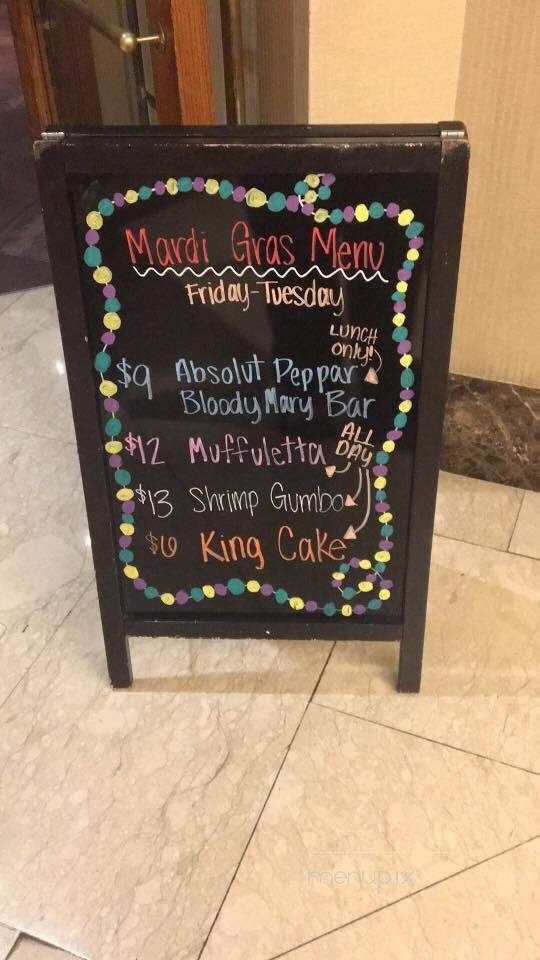 Mardi Gras Menu
Friday-Tuesday
LUNCH
only!
$9 Absolut Peppar
Bloody Mary Bar
$12 Muffuletta
ALL
DAY
$13 Shrimp Gumbo
$6 King Cake
menupix